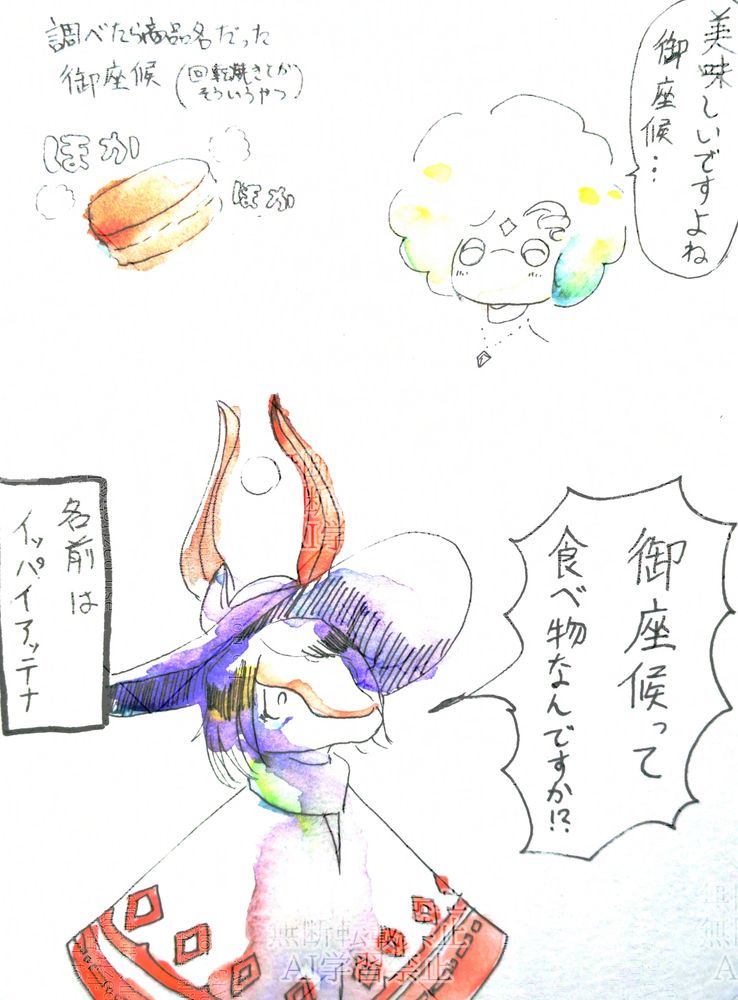 美味しいですよね
御座候…
調べたら商品名だった
御座候(回転焼きとか
そういうやつ)
ほか
ほか
御座候って
食べ物なんですか!?
名前は
イッパイアッテナ
無断転載禁止
AI学習禁止